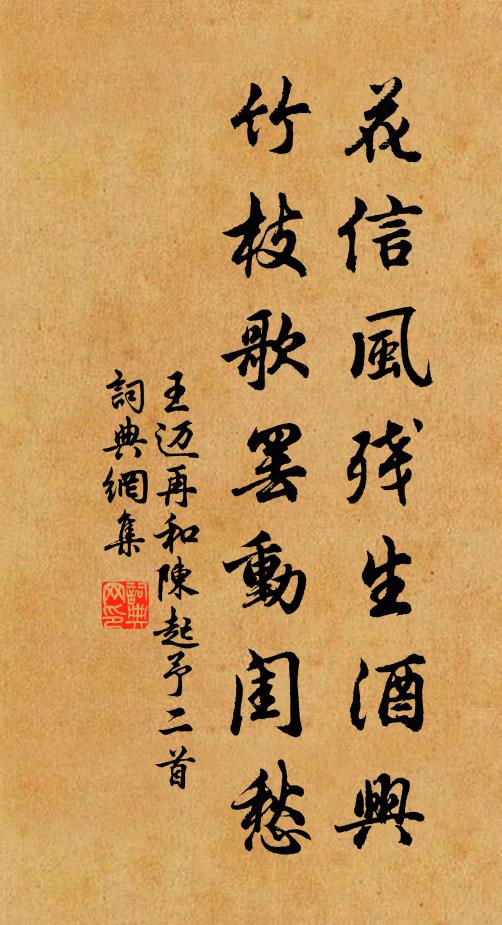 花信風残生酒興
竹枝歌罢動闺愁
王迈再和陳起予二首
詞典網集
詞典网印